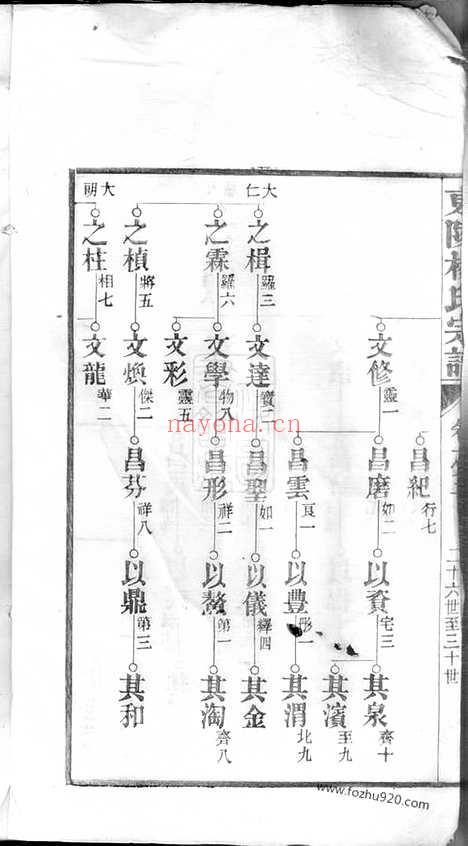 東陽 氏宗譜
二十六世至三十世
昌紀 行七
文修 靈一
昌磨 如二
以資 宅三
其泉 齊十
其濱 至九
昌雲 良一
以豐 彤一
其渭 北九
大仁
之楫 羅三
文達 寶二
昌聖 如一
以儀 釋四
其金
之霖 羅六
文學 物八
昌形 祥二
以鰲 第一
其淘 齊八
文彩 靈五
大明
之楨 將五
文煥 傑二
昌芬 祥八
以鼎 第三
其和
之柱 相七
文龍 華二
nayona.cn
www.fozhu920.com